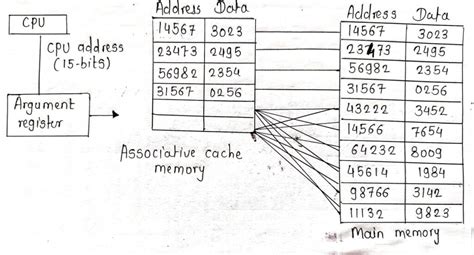 CPU
CPU address
(15-bits)
Argument
register
Address Data
14567 3023
23473 2495
56982 2354
31567 0256
Associative cache
memory
Address Data
14567 3023
23473 2495
56982 2354
31567 0256
43222 3452
14566 7654
64232 8009
45614 1984
98766 3142
11132 9823
Main memory